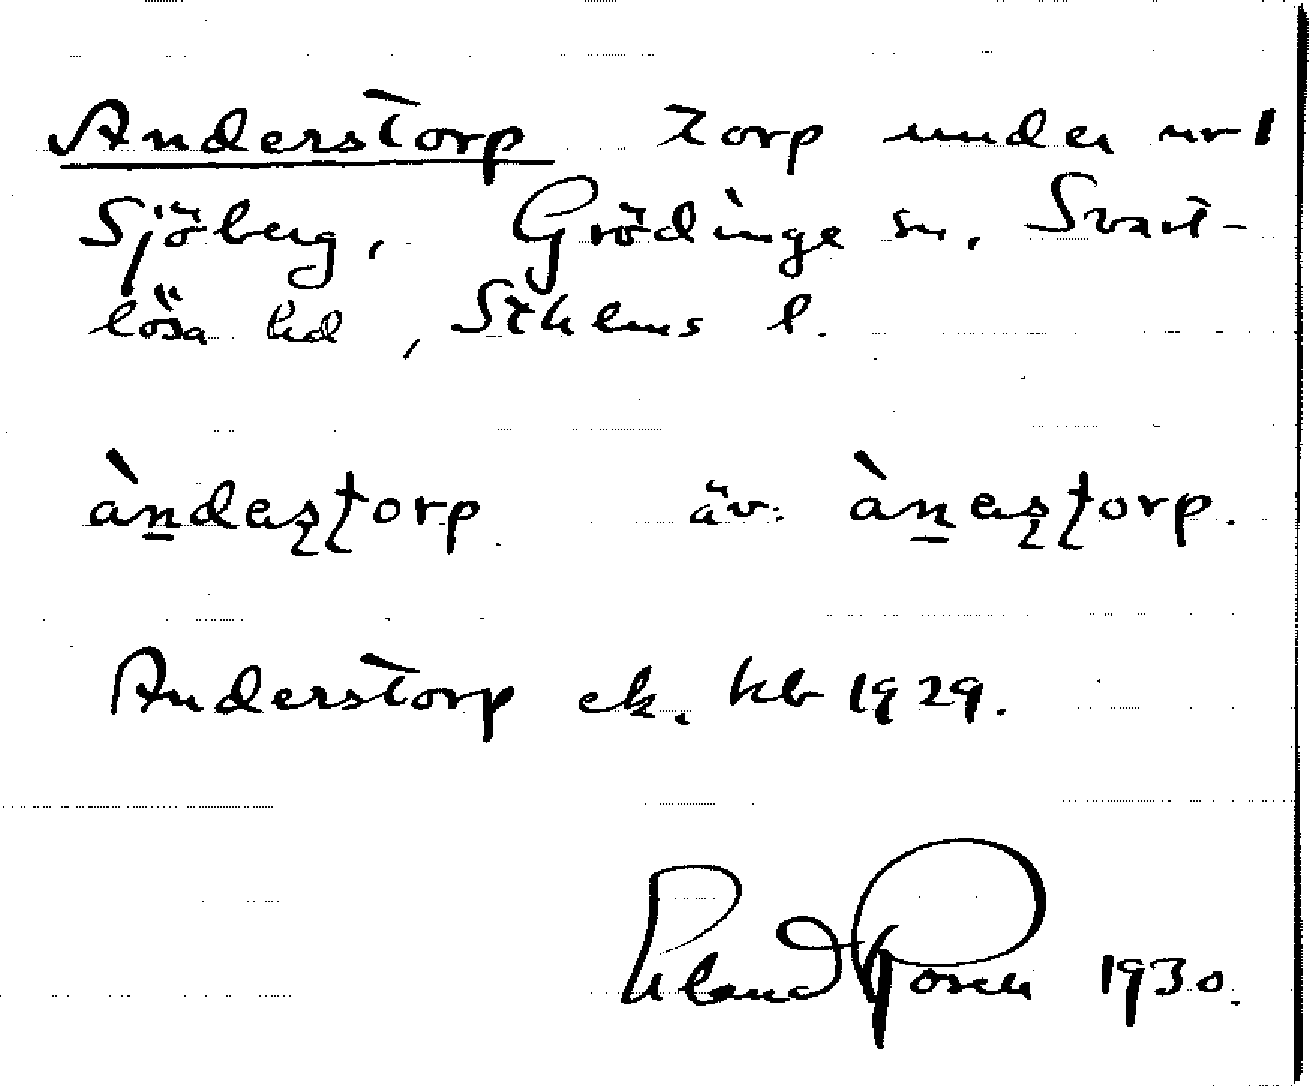 Anderstorp torp under nr 1
Sjöberg, Grödinge sn, Svart-
lösa hd, Sthlms l.
àn̲daʂʈorp äv. àn̲aʂʈorp.
Anderstorp ek. kb 1929.
Erland Rosell 1930.